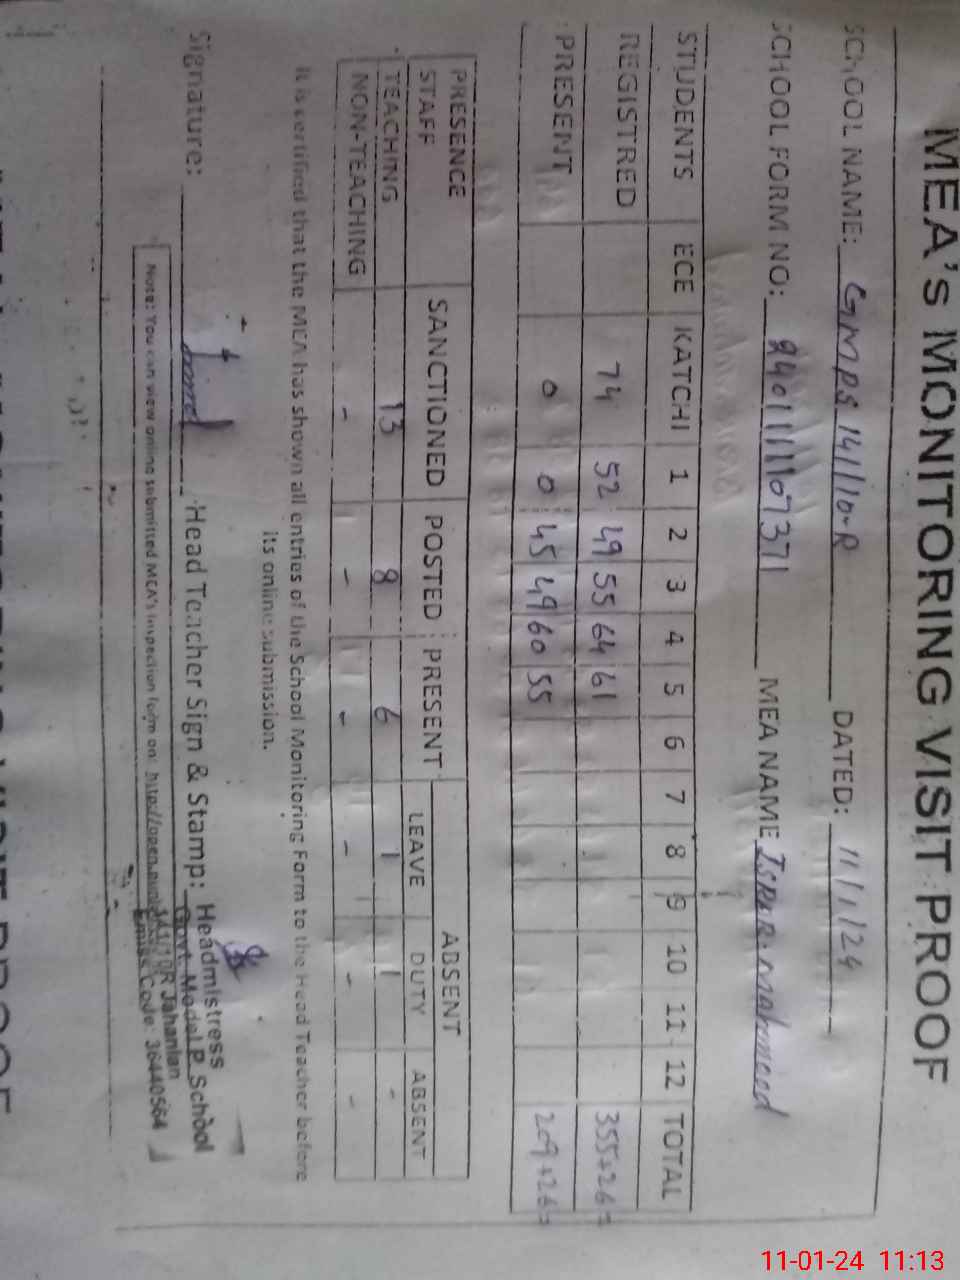 MEA'S MONITORING VISIT PROOF
SCHOOL NAME: GMPS 141/10-R DATED: 11/1/24
SCHOOL FORM NO: 24011111107371 MEA NAME Mahmood
STUDENTS ECE KATCHI 1 2 3 4 5 6 7 8 9 10 11 12 TOTAL
REGISTRED 74 52 49 55 64 61 355+26=
PRESENT 0 0 45 49 60 55 209+26=
PRESENCE SANCTIONED POSTED PRESENT ABSENT
STAFF LEAVE DUTY ABSENT
TEACHING 13 8 6 1 1 -
NON-TEACHING - - - - - -
It is certified that the MEA has shown all entries of the School Monitoring Form to the Head Teacher before
its online submission.
Signature: Head Teacher Sign & Stamp: Headmistress
Govt. Model P. School
141/10R Jahanian
Emiss Code 36440564
Note: You can view online submitted MEA's Inspection form on: http://open.
11-01-24 11:13